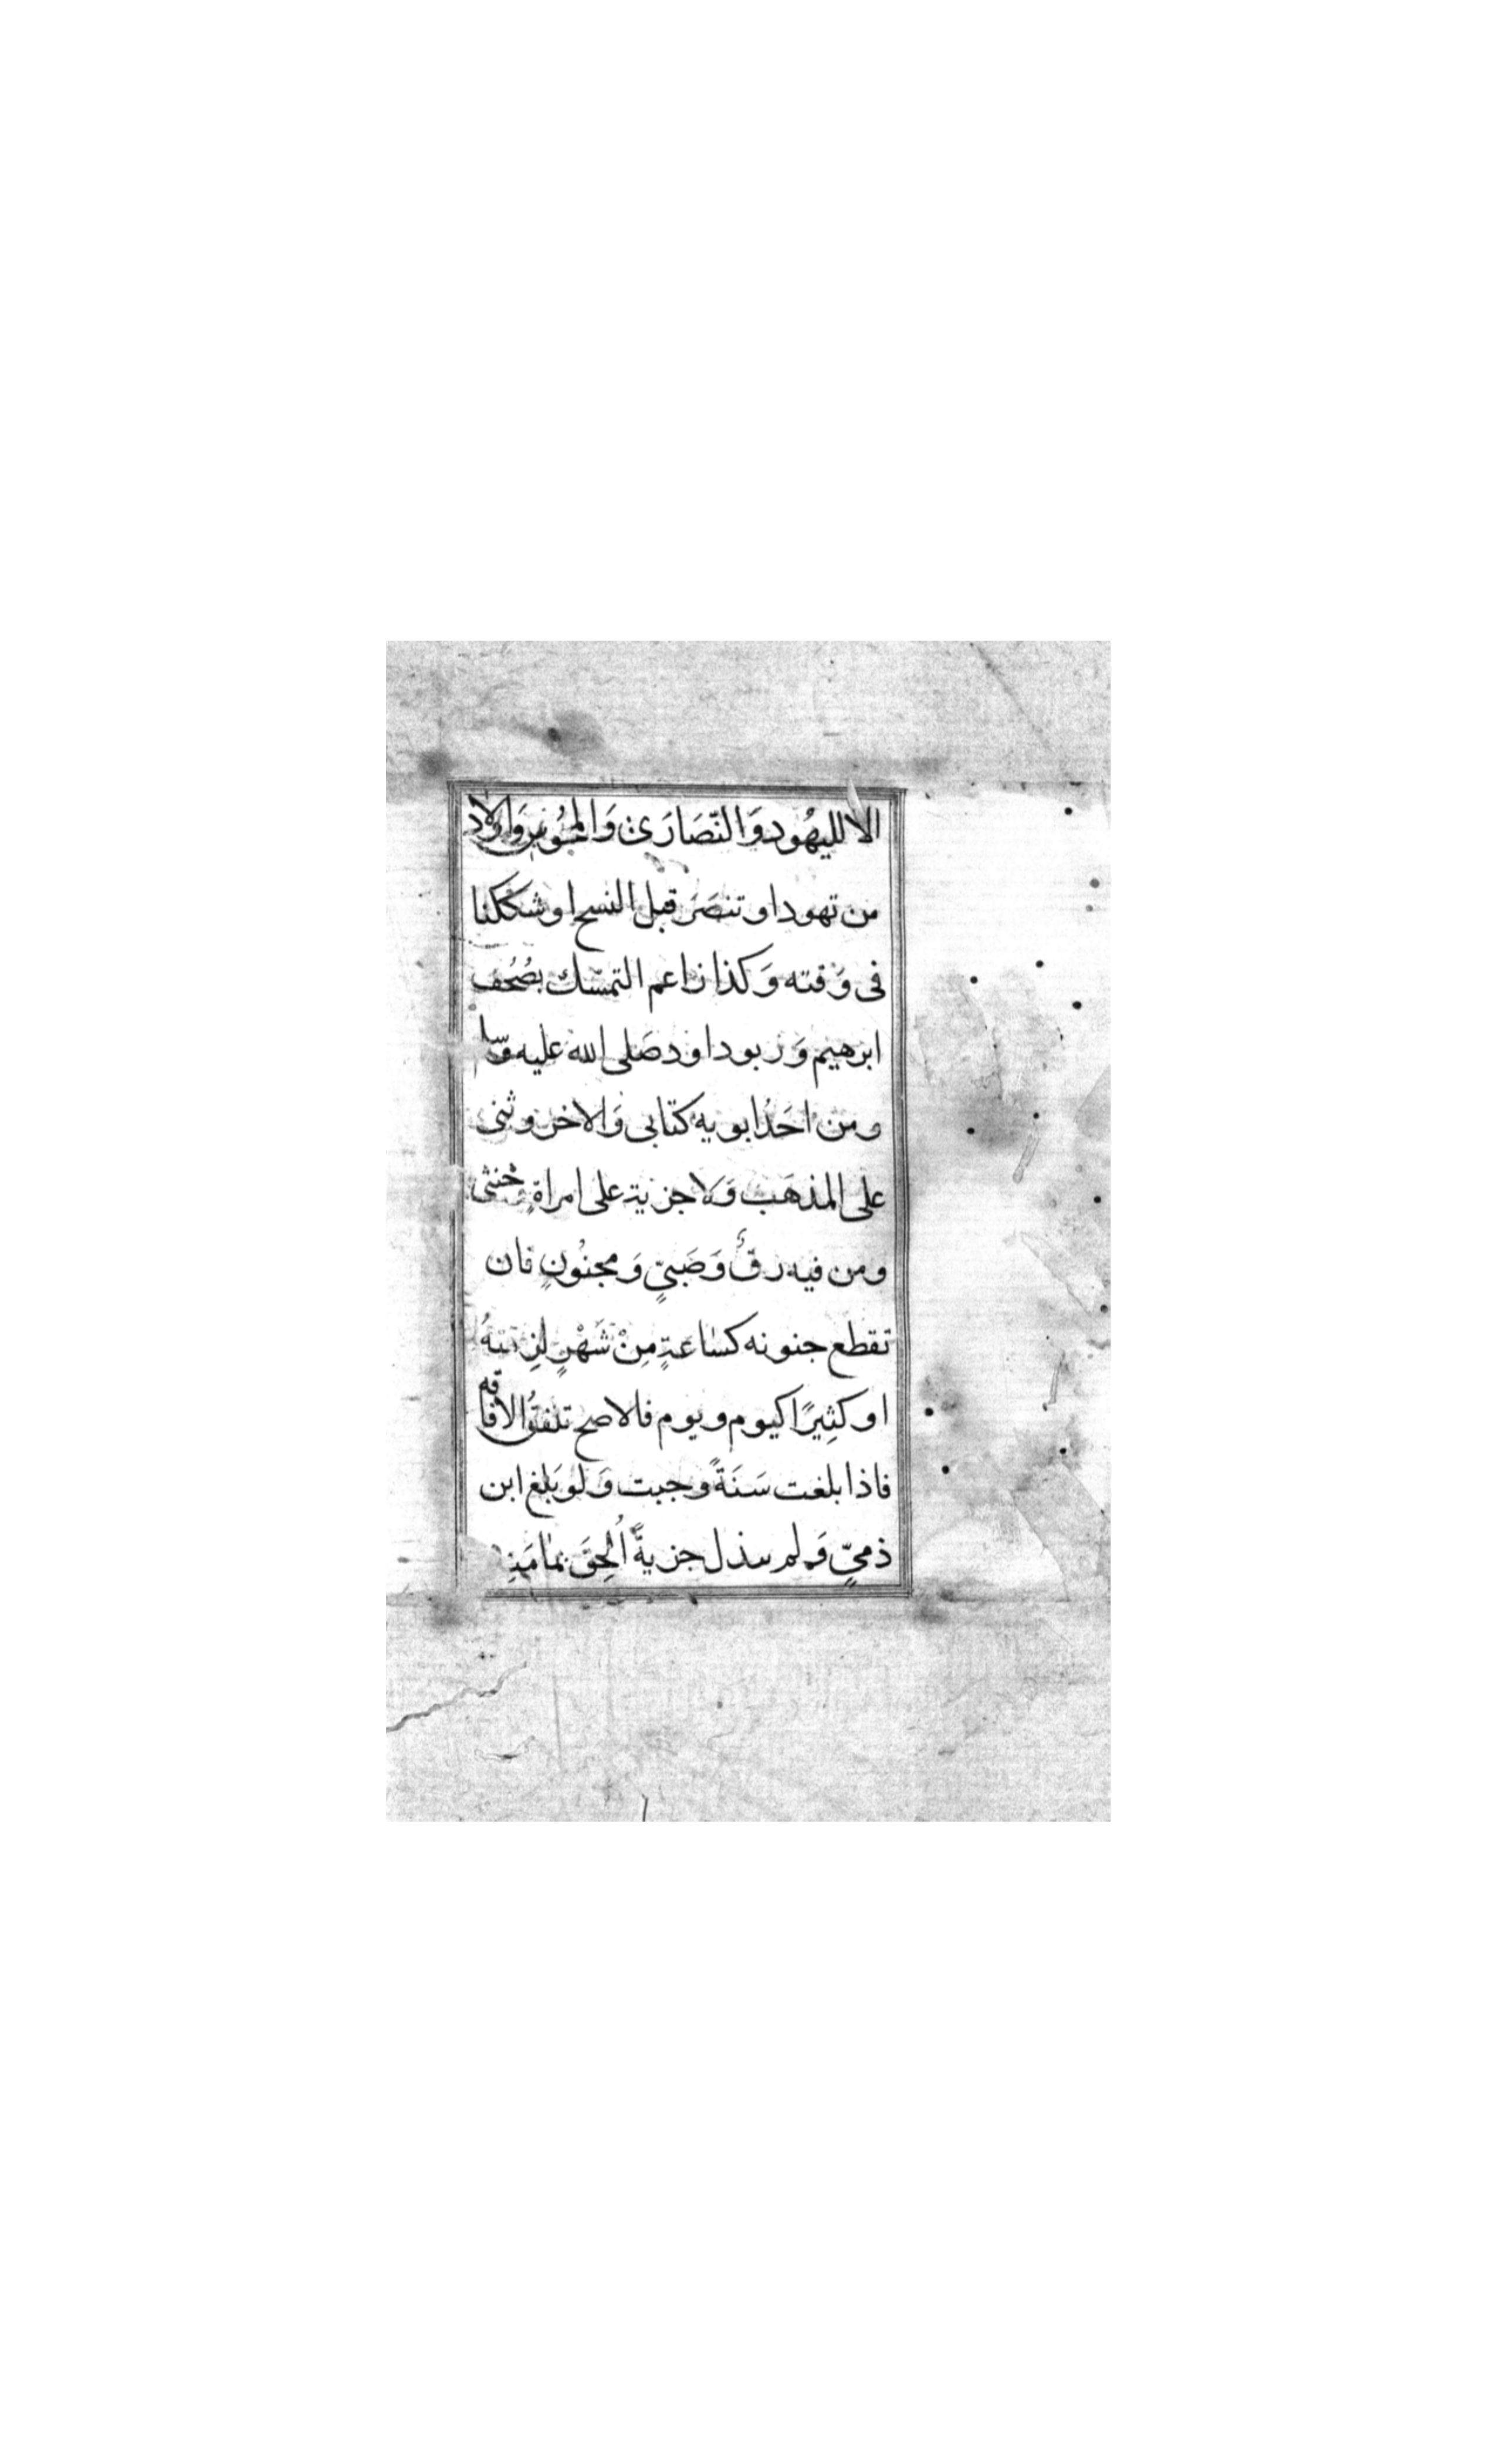 الا لليهُود وَالنّصَارَى وَالمجُوسِ وَاولاد
من تهود او تنصَرَ قبل النسخ او شككنا
فى وَقته وَكذا زاعم التمسّك بصُحُف
ابرهيم وَزبور داود صَلى الله عليه وسّلم
ومن احَدُ ابويه كتابى وَالاخر وثنى
على المذهَب وَلا جزية على امراةٍ وخُنثى
ومن فيه رقٌ وَصَبيٍّ وَمجنوُنٍ فان
تقطع جنونه كسَاعةٍ مِنْ شَهْرٍ لزمتهُ
او كثِيرًا كيوم ويوم فالاصح تلفقُ الافاقه
فاذا بلغت سَنَةً وجبت وَلو بَلغ ابن
ذميٍّ وَلم يبذل جزيةً اُلحِقَ بمامَنِه